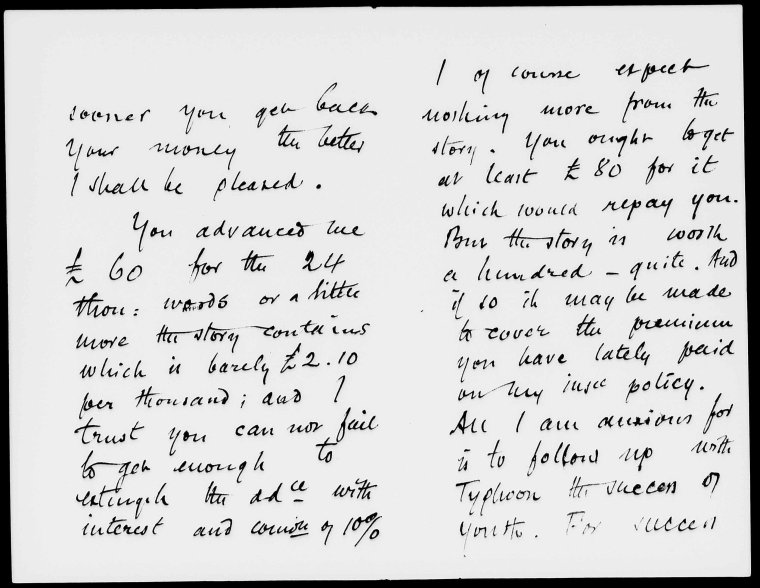 sooner you get back
your money the better
I shall be pleased.
You advanced me
£ 60 for the 24
thou: words or a little
more the story contains
which is barely £2.10
per thousand; and I
trust you can not fail
to get enough to
extingsh the adce with
interest and comion of 10%
I of course expect
nothing more from the
story. You ought to get
at least £ 80 for it
which would repay you.
But the story is worth
a hundred – quite. And
if so it may be made
to cover the premium
you have lately paid
on my insce policy.
All I am anxious for
is to follow up with
Typhoon the success of
Youth. For success